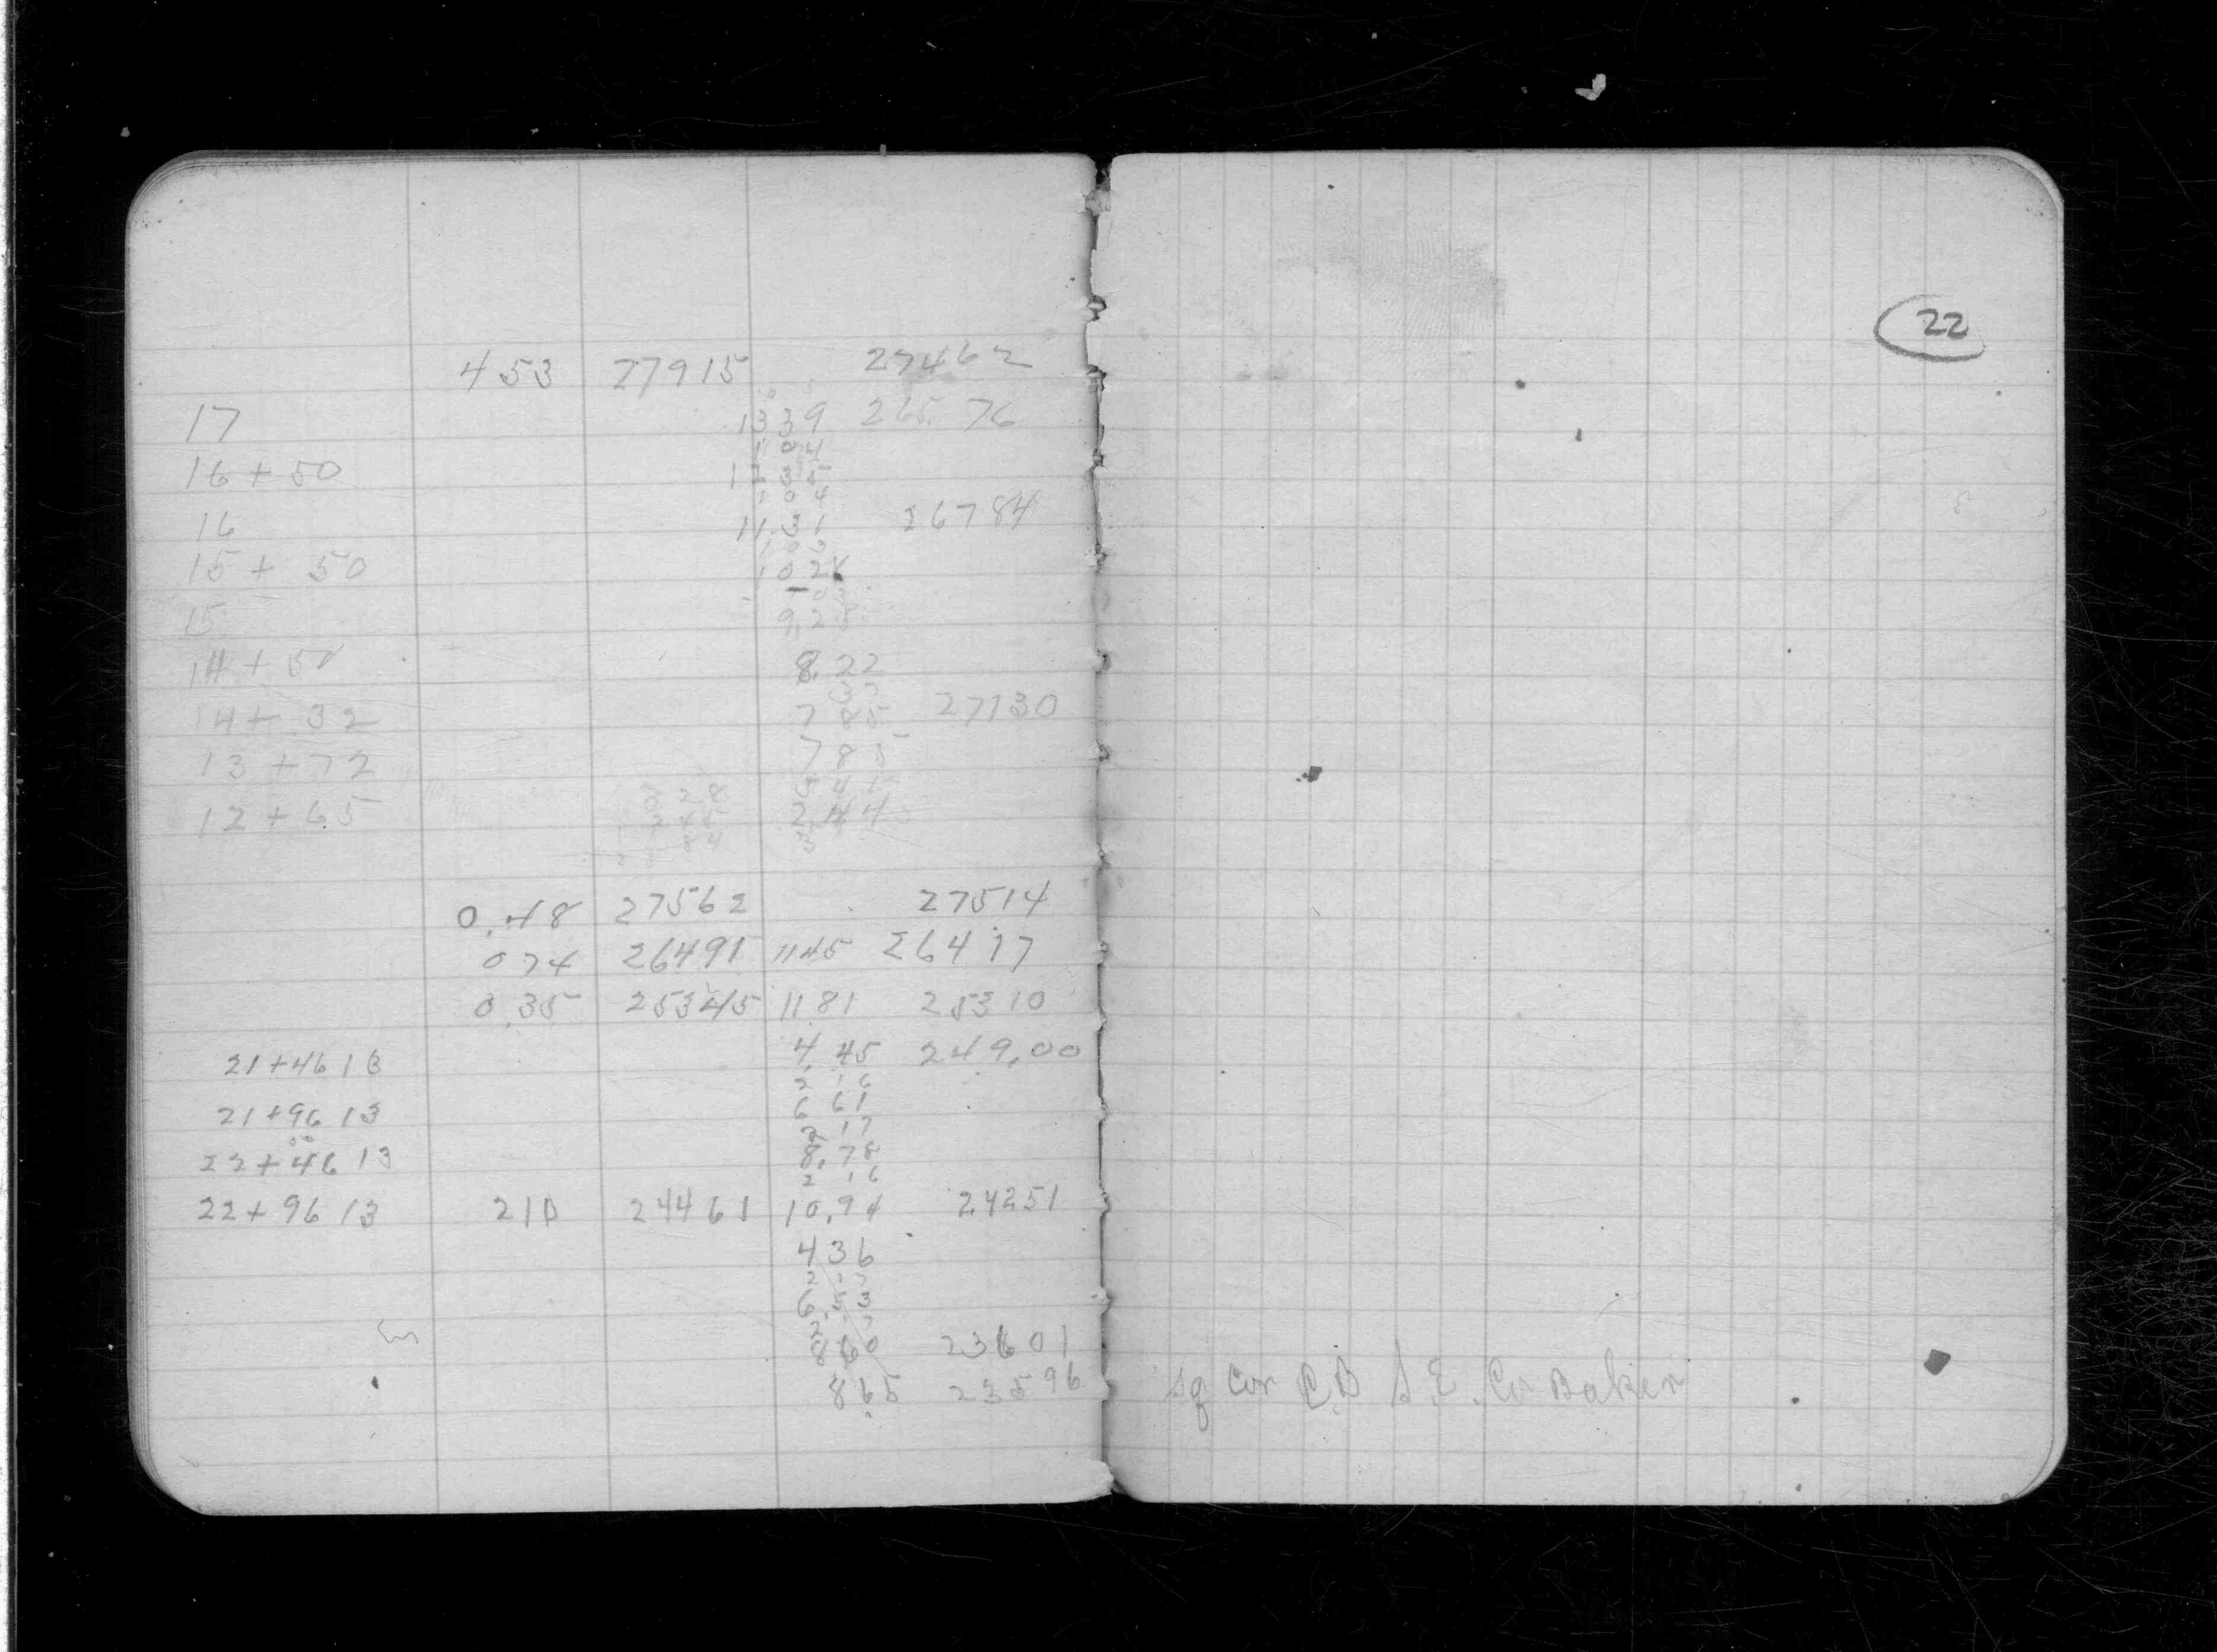 453 27915 27462
17 1339 265.76
184
16 + 50 1155
104
16 11.31 26784
15 + 50 1028
15 9.25
14 + 50 8.22
14 + 32 785 27130
13 + 72 785
12 + 65 244
0.48 27562 27514
074 26491 1145 26417
0.35 25345 1181 25310
4.45 249.00
21+46 13
2 16
21+96 13 6 61
2 17
00
22+46 13 8.78
2 16
22+96 13 210 24461 10.94 24251
436
2 17
6.53
2
860 23601
865 23596
22
Sq Cor C.B S.E. Co Baker